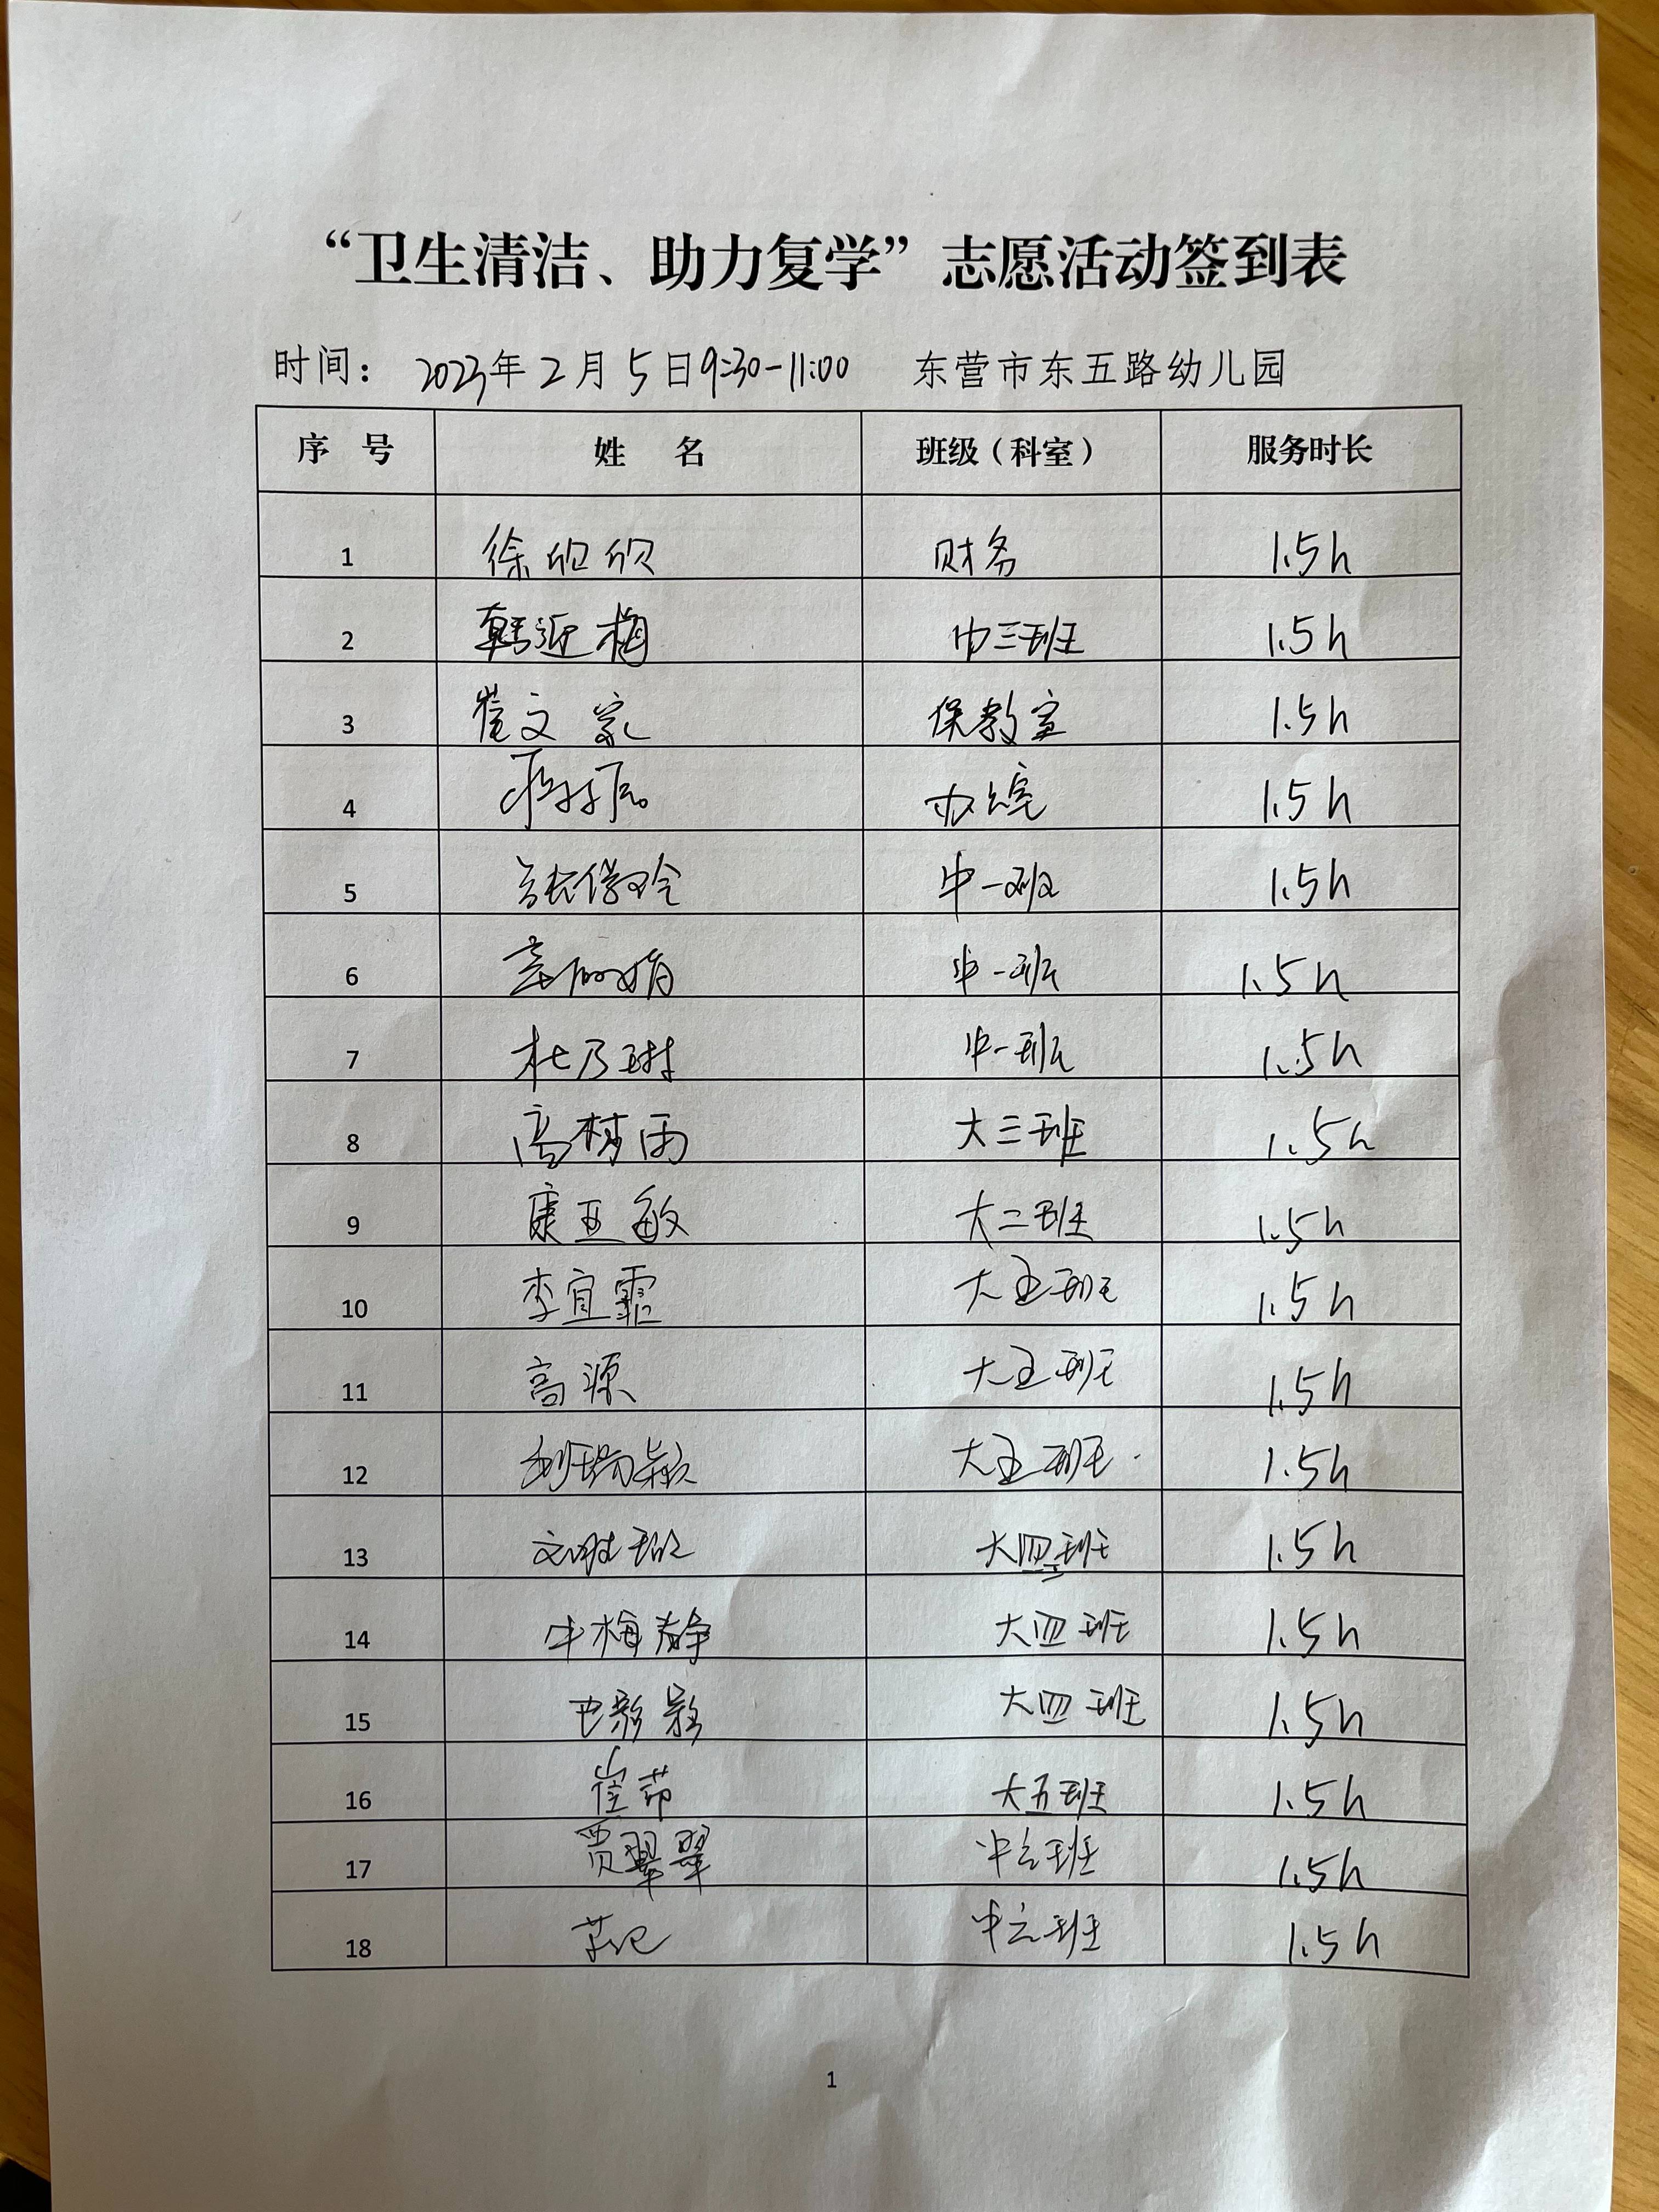 “卫生清洁、助力复学”志愿活动签到表
时间： 2023年 2月 5日9:30-11:00 东营市东五路幼儿园
序 号 姓 名 班级（科室） 服务时长
1 徐欣欣 财务 1.5h
2 韩近梅 中三班 1.5h
3 崔文家 保教室 1.5h
4 办公室 1.5h
5 中一班 1.5h
6 中一班 1.5h
7 杜乃琳 中一班 1.5h
8 高梦雨 大三班 1.5h
9 康亚敏 大二班 1.5h
10 李宜霏 大五班 1.5h
11 高源 大五班 1.5h
12 刘瑞颖 大五班 1.5h
13 大四班 1.5h
14 牛梅静 大四班 1.5h
15 大四班 1.5h
16 崔茹 大五班 1.5h
17 贾翠翠 中六班 1.5h
18 中六班 1.5h
1